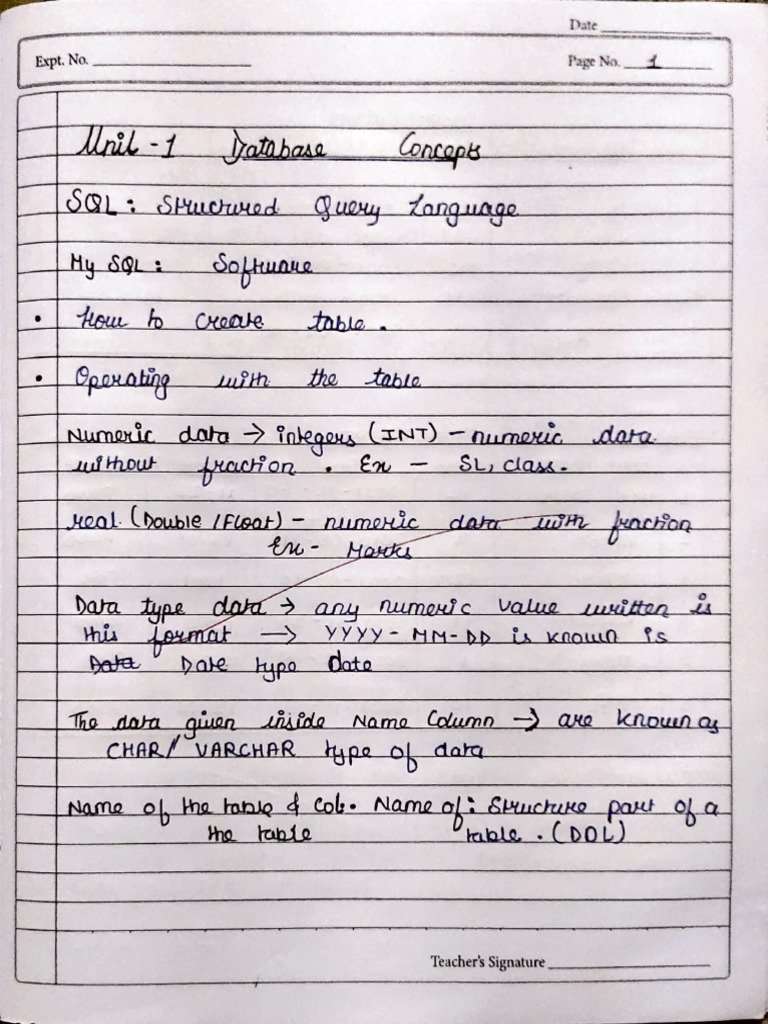 Date
Expt. No.
Page No. 1
Unit -1 Database Concepts
SQL: Structured Query Language
My SQL: Software
• How to create table.
• Operating with the table
Numeric data → integers (INT) - numeric data
without fraction. Ex - SL, class.
real (Double /Float) - numeric data with fraction
Ex - Marks
Data type data → any numeric value written is
this format → YYYY-MM-DD is known is
Data Date type date
The data given inside Name Column → are known as
CHAR/ VARCHAR type of data
Name of the table & Col. Name of: Structure part of a
the table table. (DOL)
Teacher's Signature